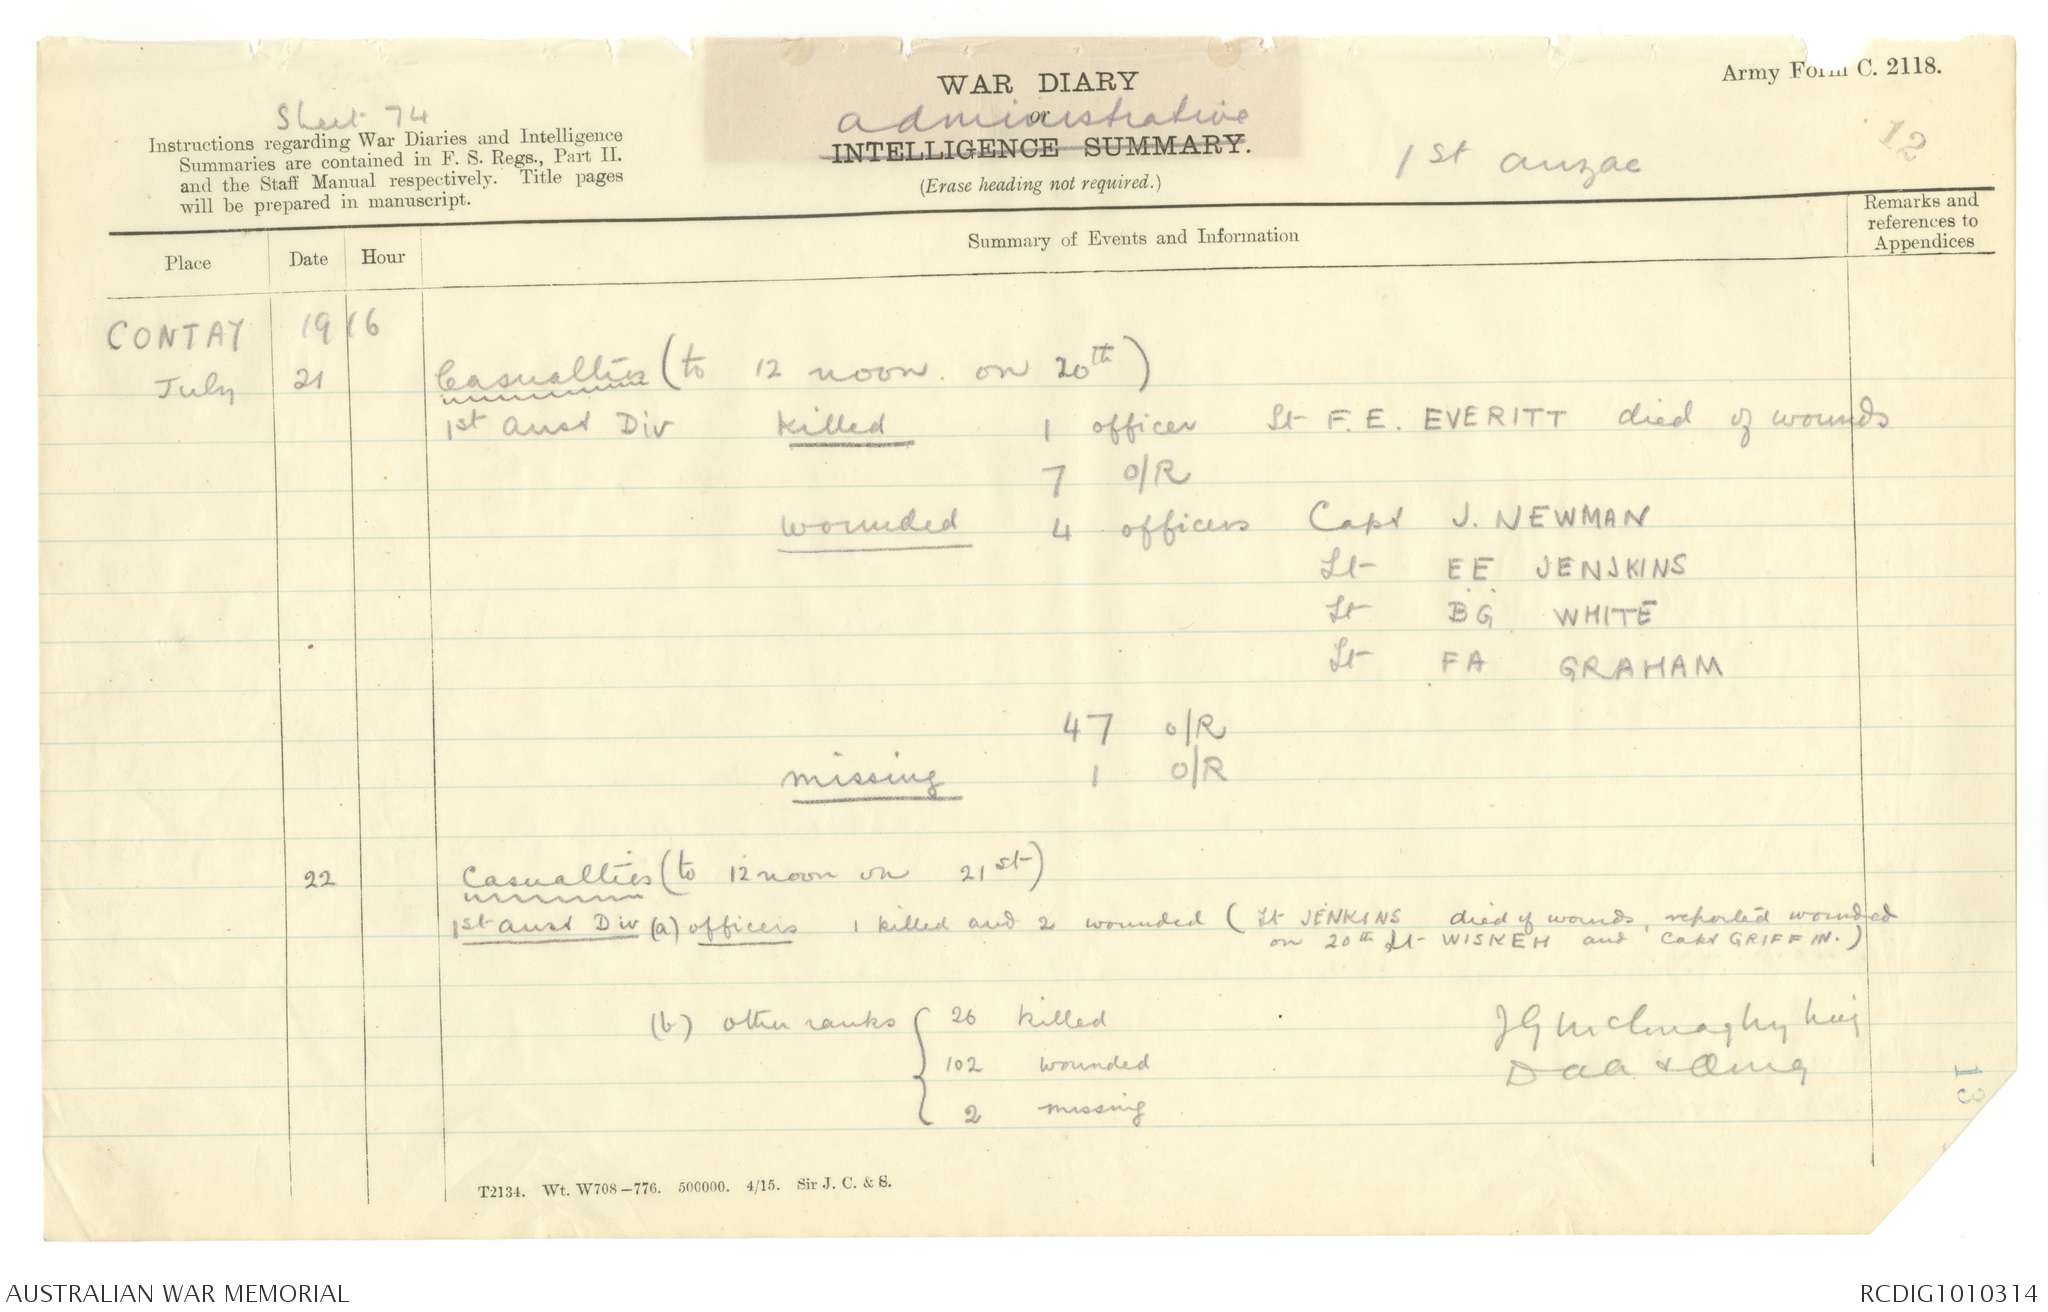 Army Form C. 2118.
WAR DIARY
or
administrative
INTELLIGENCE SUMMARY.
(Erase heading not required.)
Sheet 74
Instructions regarding War Diaries and Intelligence
Summaries are contained in F. S. Regs., Part II.
and the Staff Manual respectively. Title pages
will be prepared in manuscript.
1st anzac
12
Place Date Hour Summary of Events and Information Remarks and references to Appendices
CONTAY 1916
July 21 Casualties (to 12 noon on 20th)
1st Aust Div killed 1 officer Lt F.E. EVERITT died of wounds
7 O/R
wounded 4 officers Capt J. NEWMAN
Lt EE JENJKINS
Lt BG WHITE
Lt FA GRAHAM
47 O/R
missing 1 O/R
22 Casualties (to 12 noon on 21st)
1st Aust Div (a) officers 1 killed and 2 wounded (Lt JENKINS died of wounds, reported wounded
on 20th Lt WISKEH and Capt GRIFFIN.)
(b) other ranks { 26 killed
102 wounded
2 missing
DAA & QMG
13
T2134. Wt. W708—776. 500000. 4/15. Sir J. C. & S.
AUSTRALIAN WAR MEMORIAL
RCDIG1010314